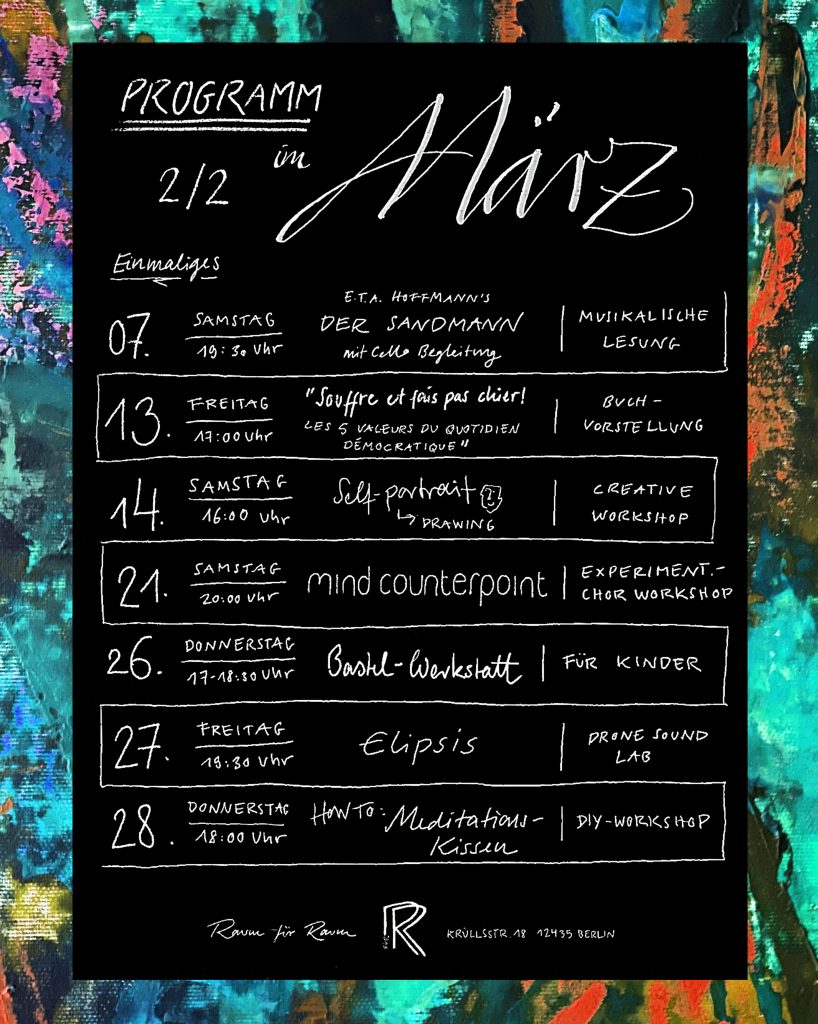 PROGRAMM
im März
2/2
Einmaliges
07. SAMSTAG 19:30 Uhr
E.T.A. HOFFMANN'S
DER SANDMANN
mit Cello Begleitung
MUSIKALISCHE
LESUNG
13. FREITAG 17:00 Uhr
"Souffre et fais pas chier!
LES 5 VALEURS DU QUOTIDIEN
DÉMOCRATIQUE"
BUCH-
VORSTELLUNG
14. SAMSTAG 16:00 Uhr
Self-portrait
DRAWING
CREATIVE
WORKSHOP
21. SAMSTAG 20:00 Uhr
mind counterpoint
EXPERIMENT.-
CHOR WORKSHOP
26. DONNERSTAG 17-18:30 Uhr
Bastel-Werkstatt
FÜR KINDER
27. FREITAG 19:30 Uhr
Elipsis
DRONE SOUND
LAB
28. DONNERSTAG 18:00 Uhr
HOW TO: Meditations-
Kissen
DIY-WORKSHOP
Raum für Raum
R
KRÜLLSSTR. 18 12435 BERLIN